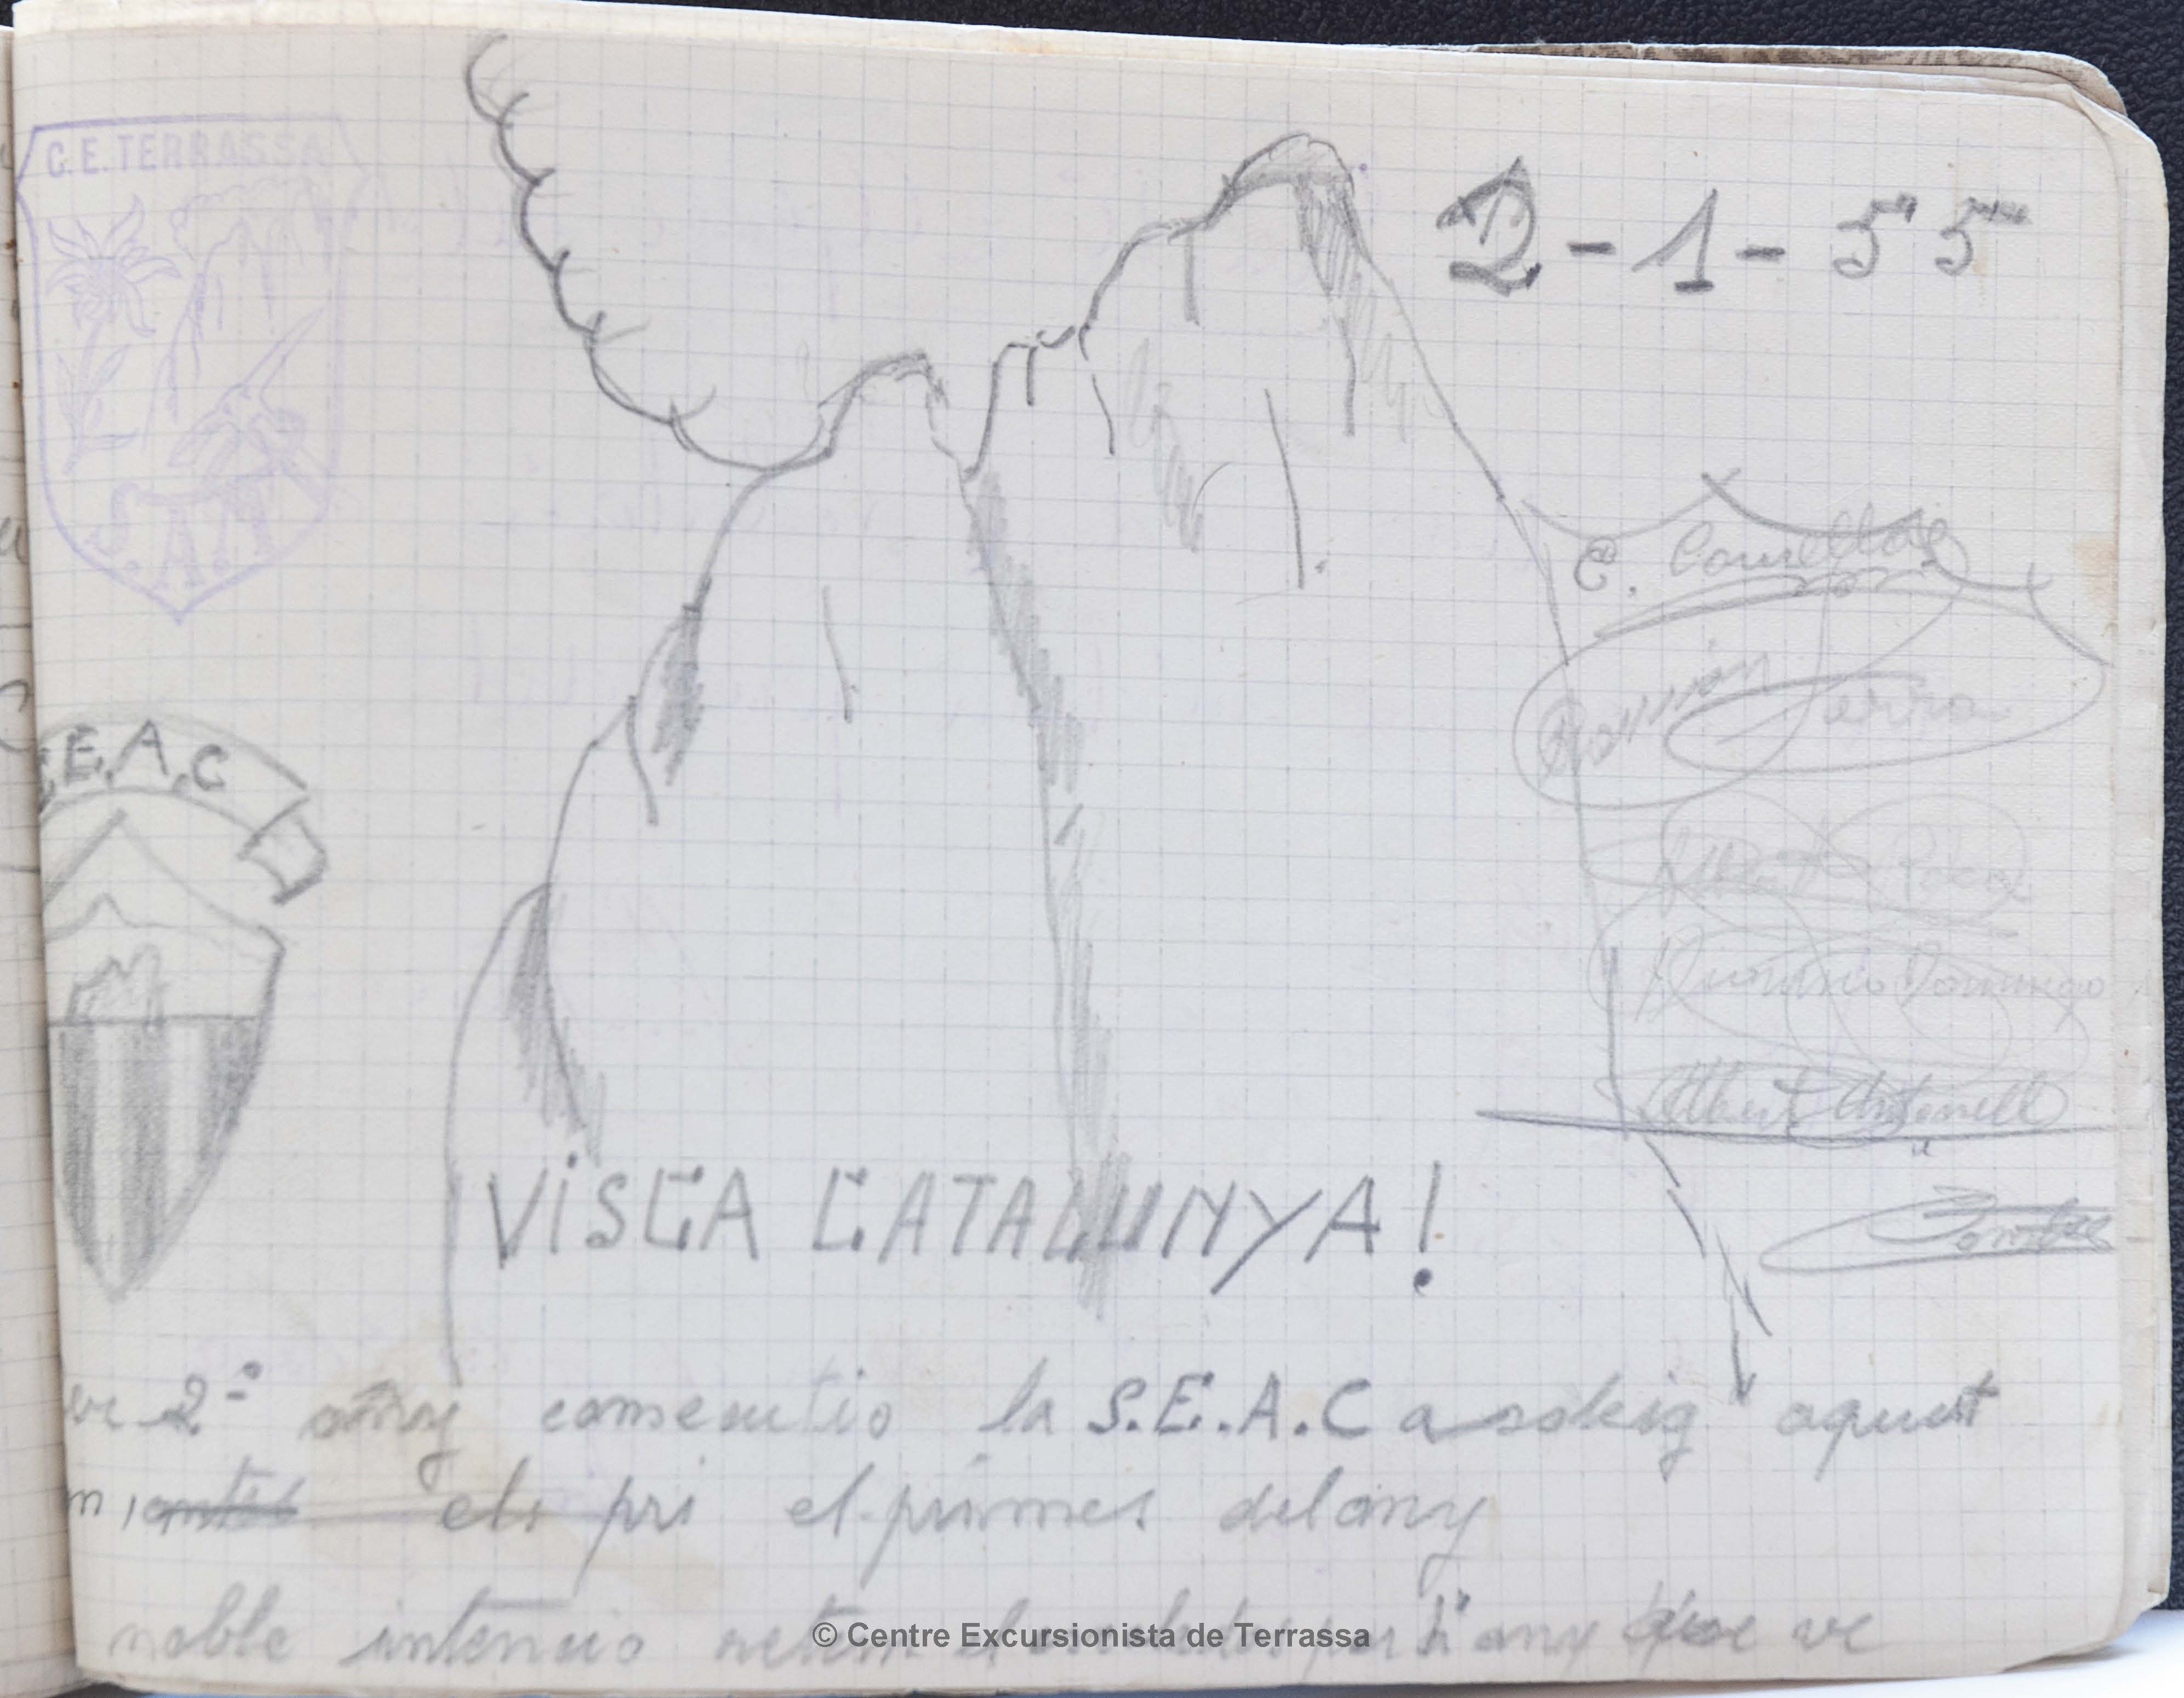 C.E. TERRASSA
S.A.T
2-1-55
C. Comellas
Ramón Serra
Domingo
Albert Antonell
E.A.C
VISCA CATALUNYA!
ve 2º añoy consecutio la S.E.A.C a sokig aquest
m els pri el primes del any
noble intencio per l'any que ve
© Centre Excursionista de Terrassa